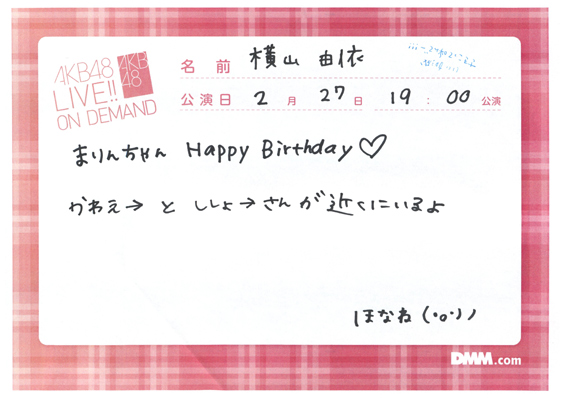 AKB48
LIVE!!
ON DEMAND
AKB
48
名前 横山 由依
公演日 2月 27日 19:00 公演
まりんちゃん Happy Birthday♡
かわえ→ と ししょ→さんが近くにいるよ
ほなね (・o・)ノ
DMM.com